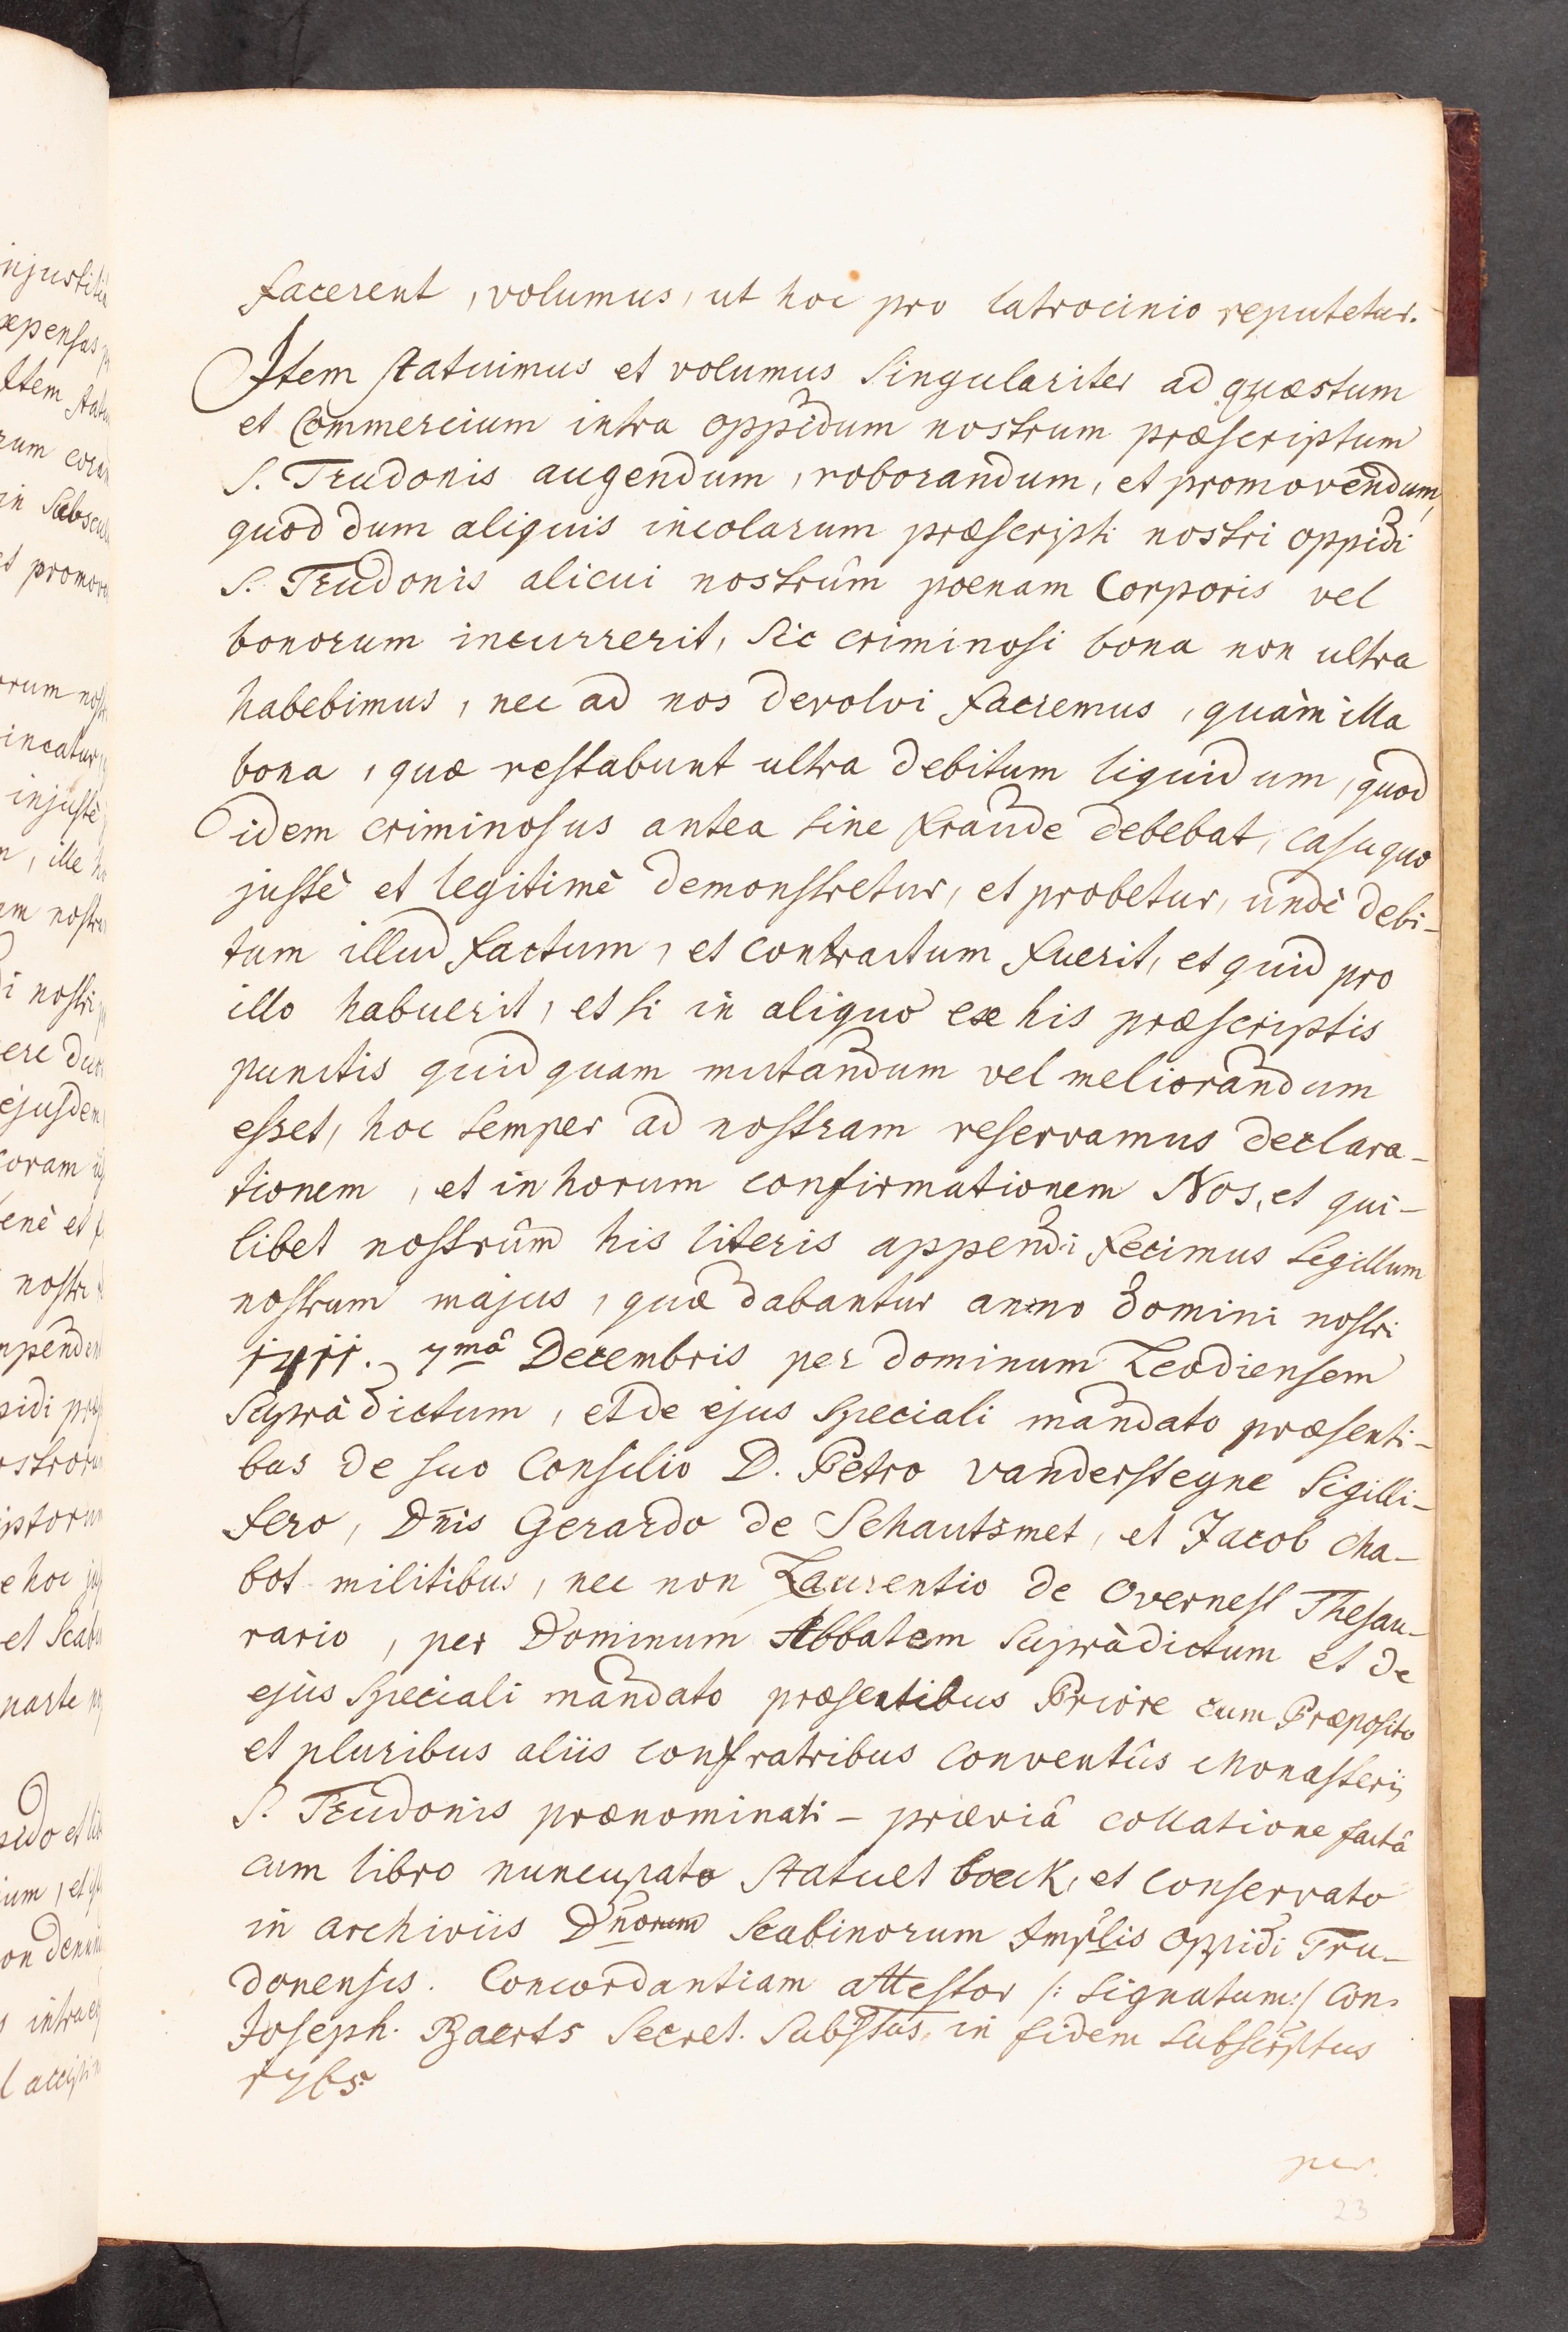 facerent, volumus, ut hoc pro latrocinio reputetur.
Item statuimus et volumus singulariter ad quæstum
et Commercium intra oppidum nostrum præscriptum
S. Trudonis augendum, roborandum, et promovendum,
quod dum aliquis incolarum præscripti nostri oppidi
S. Trudonis alicui nostrûm poenam Corporis vel
bonorum incurrerit, sic criminosi bona non ultra
habebimus, nec ad nos devolvi facremus, quàm illa
bona, quæ restabunt ultra debitum liquidum, quod
idem criminosus antea sine fraude debebat, casu quo
justè et legitimè demonstretur, et probetur, undè debi-
tum illud factum, et contractum fuerit, et quid pro
illo habuerit, et si in aliquo ex his præscriptis
punctis quidquam mutandum vel meliorandum
esset, hoc semper ad nostram reservamus declara-
tionem, et in horum confirmationem Nos, et qui-
libet nostrûm his literis appendi fecimus sigillum
nostrum majus, quæ dabantur anno domini nostri
1411. 7mâ Decembris per dominum Leodiensem
supràdictum, et de ejus speciali mandato præsenti-
bus de suo Consilio D. Petro vanderstegne sigilli-
fero, Dnis Gerardo de Schautsmet, et Jacob Cha-
bot militibus, nec non Laurentio de Overnest Thesau-
rario, per Dominum Abbatem supràdictum et de
ejus speciali mandato præsentibus Priore cum Præposito
et pluribus aliis confratribus Conventûs Monasterij
S. Trudonis prænominati - præviâ collatione factâ
cum libro nuncupato statuet boeck, et conservato
in archiviis Dnorum Scabinorum Implis oppidi Tru-
donensis. Concordantiam attestor /: signatum :/ Con.
Joseph. Baerts Secret. Substus. in fidem subscriptus
1765
per.
23